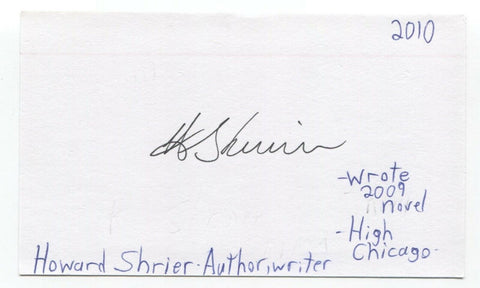 2010
HShrier
-Wrote
2009
novel
-High
Chicago-
Howard Shrier-Author, writer